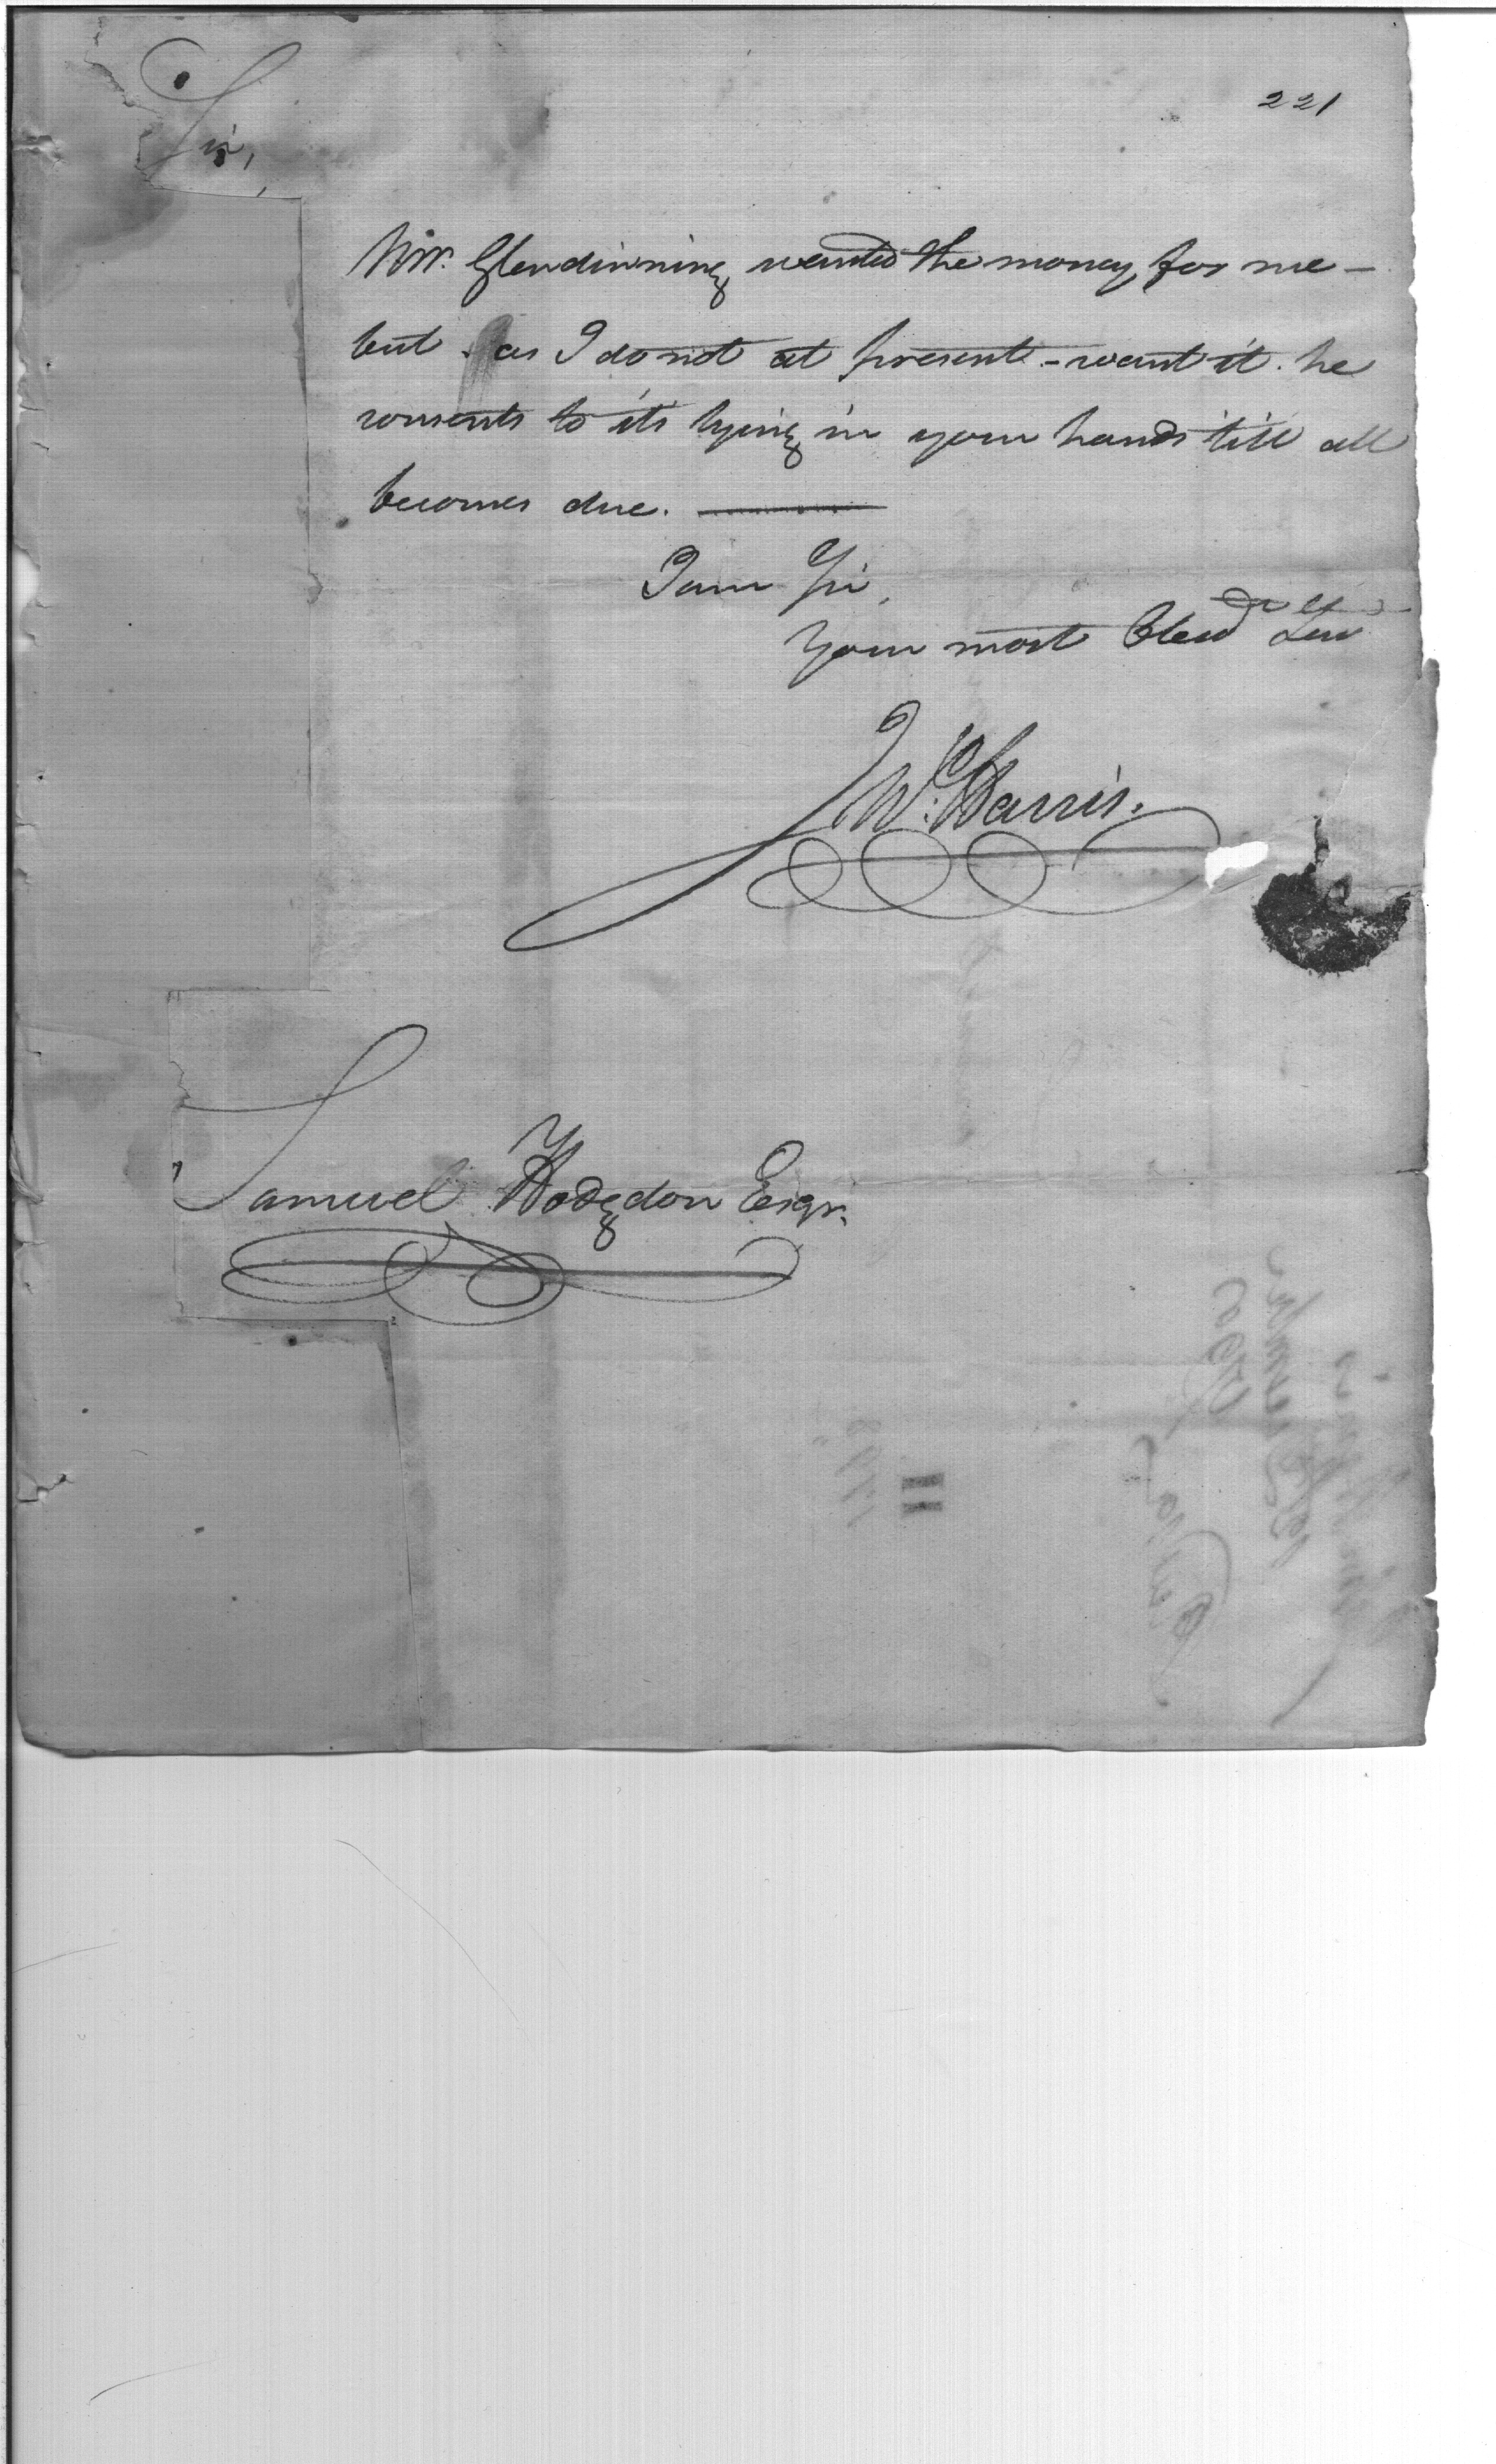 221
Sir,
Mr. Glendinning wanted the money for me –
but as I do not at present – want it. he
consents to its lying in your hands 'till all
becomes due.
I am Sir,
Your most Obed Serv
W. Harris.
Samuel Hodgdon Esqr.